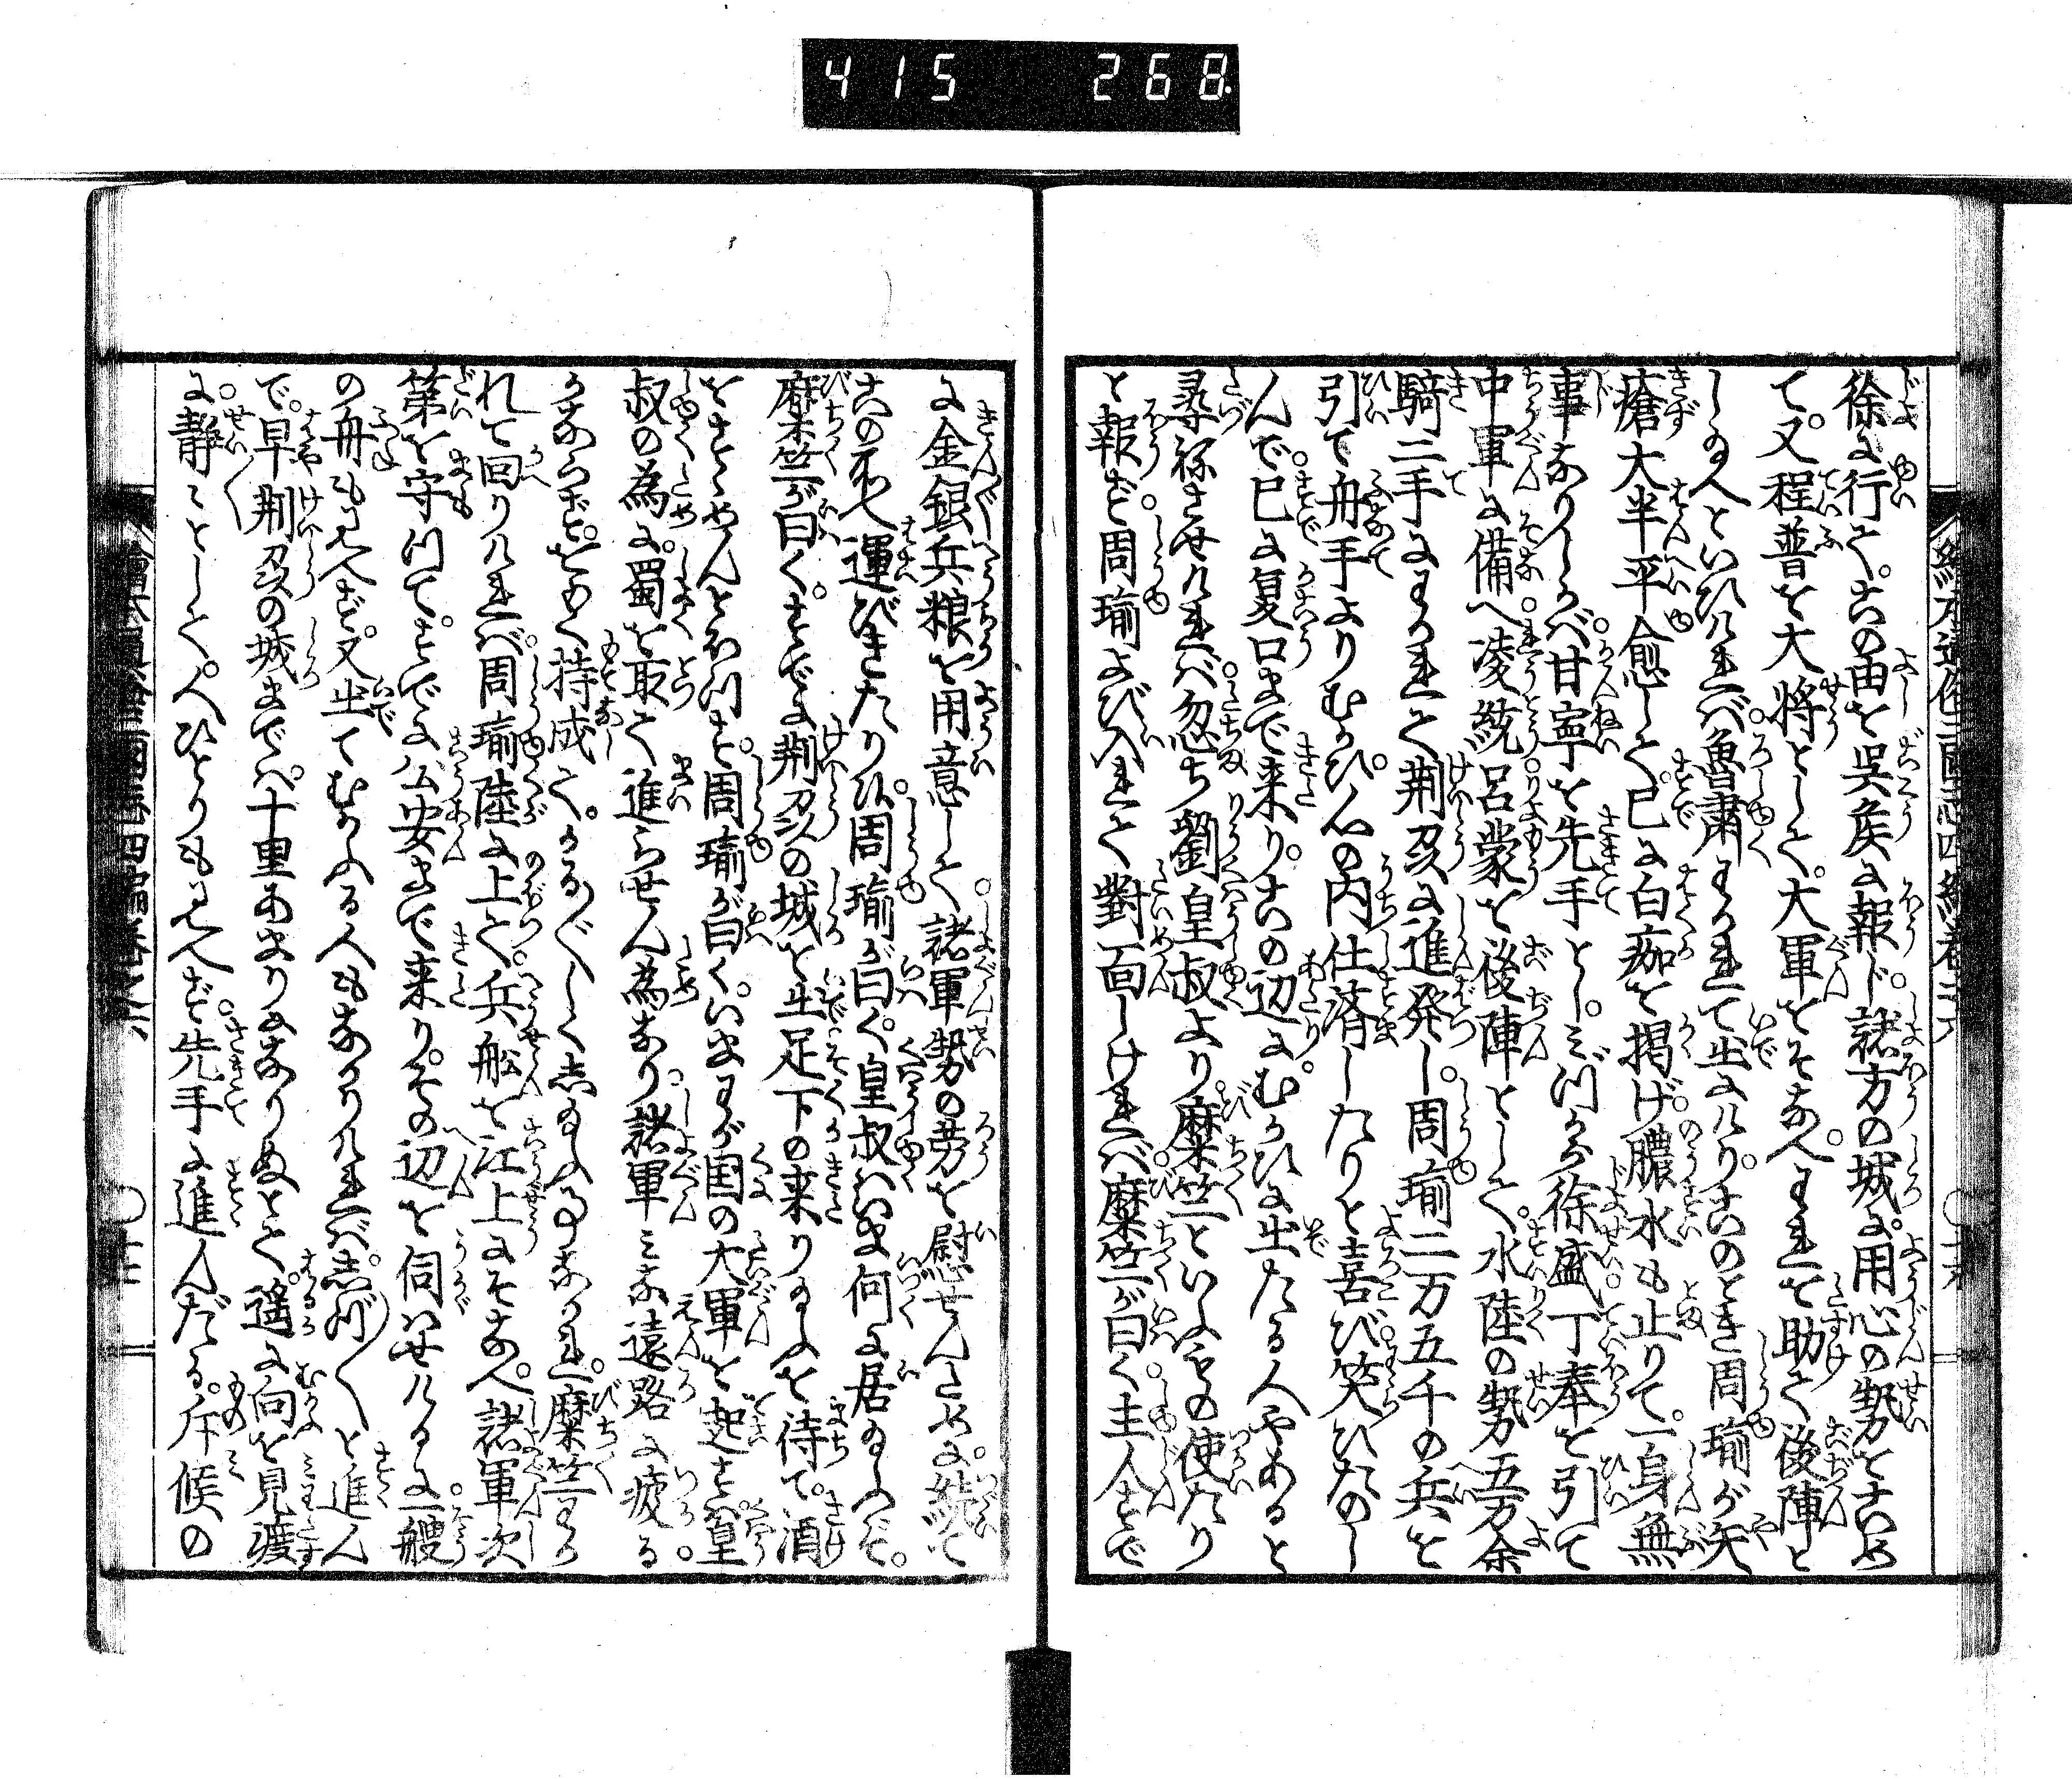 415 268
徐に行て。此由を呉侯に報ド。諸方の城に用心の勢をこめ
て。又程普を大将として。大軍をそなへ。われを助て後陣と
し給へといひければ。魯肅わかれて出にけり。此のとき周瑜が矢
瘡大半平愈して。已に白痂を掲げ。膿水も止りて。一身無
事なりしかべ。甘寧を先手とし。みづから徐盛丁奉を引て
中軍に備へ。凌統呂蒙を後陣として。水陸の勢五万余
騎二手にわかれて荆州に進発し。周瑜二万五千の兵を
引て舟手よりむかひ。心の内仕済したりと喜び笑ひたのし
んで。已に夏口まで来り。此の辺に。むかひに出たる人やあると
尋ねさせければ。忽ち劉皇叔より。糜竺といふもの使たり
と報ず。周瑜よび入れて對面しければ。糜竺が曰く。主人すで
に金銀兵粮を用意して。諸軍勢の労を慰せんため。続て
此の所へ運びきたり。周瑜が曰く。皇叔はいま何に居給ふぞ。
糜竺が曰く。すでに荆州の城を出。足下の来り給ふを待て。酒
をすゝめんとほつす。周瑜が曰く。いまわが国の大軍を起すは。皇
叔の為に。蜀を取て進らせん為なり。諸軍みな遠路に疲る。
かならずをもく持成て。かるがしく志給ふ事なかれ。糜竺わか
れて回りければ。周瑜陸に上て。兵船を江上にそなへ。諸軍次
第を守つて。すでに公安まで来り。その辺を伺はせけるに。一艘
の舟も見へず。又出てむかふる人もなかりければ。志づ〳〵と進ん
で。早荆州の城まで。十里あまりになりぬとて。遙に向を見渡
に。静々として。人ひとりも見へず。先手に進んだる。斥候の